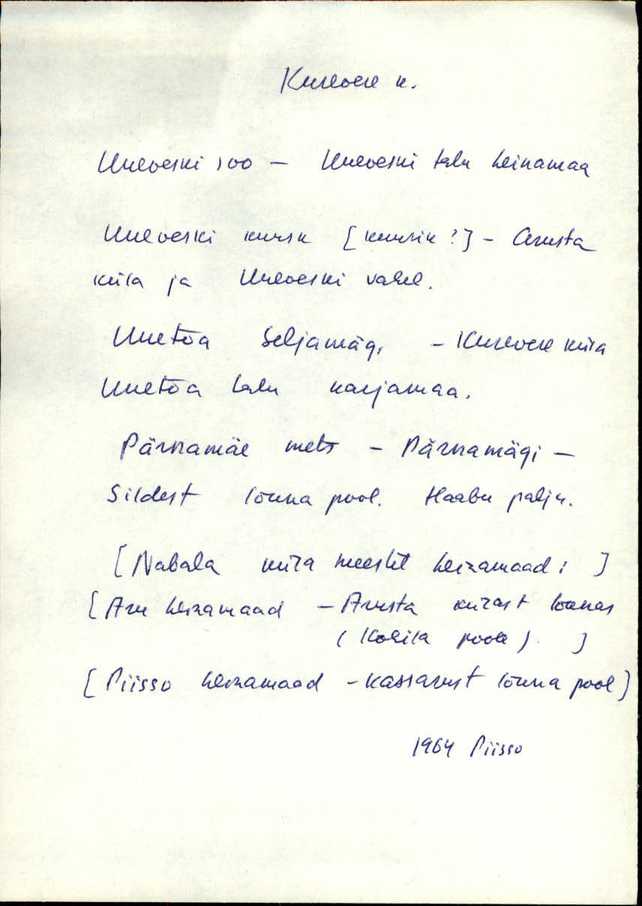 Kurevere k.
Uueveski soo - Uueveski talu heinamaa
Uueveski kurisu [kuurik?] - Arusta
küla ja Uueveski vahel.
Uuetoa Seljamägi - Kurevere küla
Uuetoa talu karjamaa.
Pärnamäe mets - Pärnamägi -
Sildest lõuna pool. Haabu palju.
[Nabala küla meestel heinamaad: ]
[Aru heinamaad - Arusta külast lõunas
(Kohila poole) ]
[Piisso heinamaad - Kassarust lõuna pool]
1964 Piisso